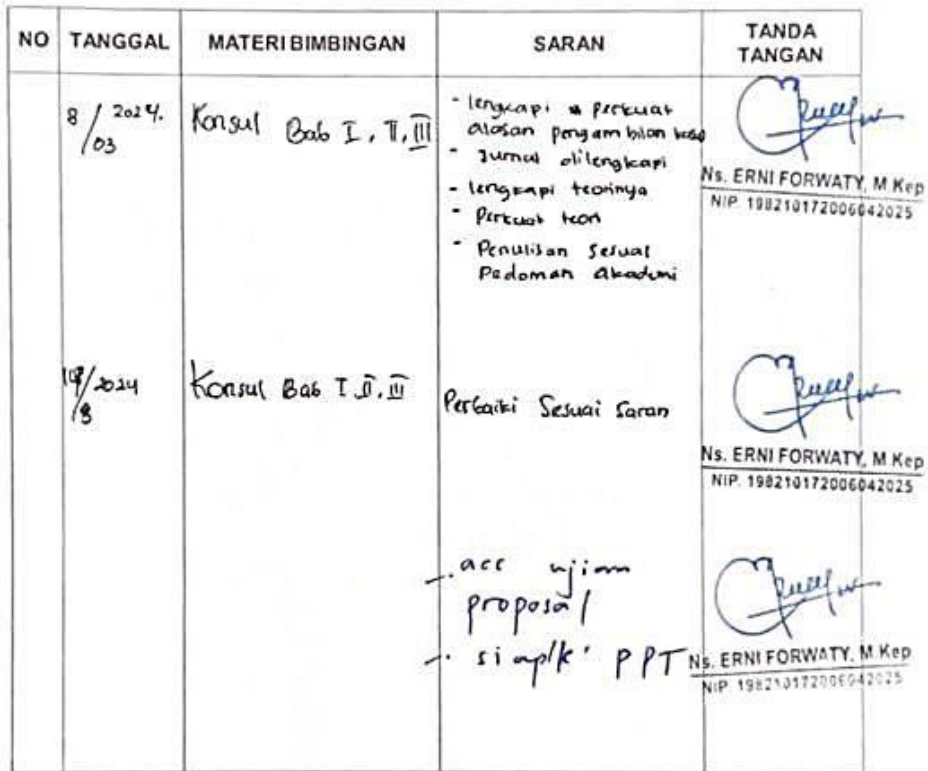 NO TANGGAL MATERI BIMBINGAN SARAN TANDA TANGAN
8/03 2024. Konsul Bab I, II, III
- lengkapi & perkuat
alasan pengambilan kasus
- Jurnal dilengkapi
- lengkapi teorinya
- Perkuat teori
- Penulisan Sesuai
Pedoman akademi
Ns. ERNI FORWATY, M Kep
NIP. 198210172006042025
/2024 Konsul Bab I, II, III
Perbaiki Sesuai Saran
Ns. ERNI FORWATY, M Kep
NIP. 198210172006042025
- acc ujian
proposal
- siapk' PPT
Ns. ERNI FORWATY, M.Kep
NIP. 198210172006042025